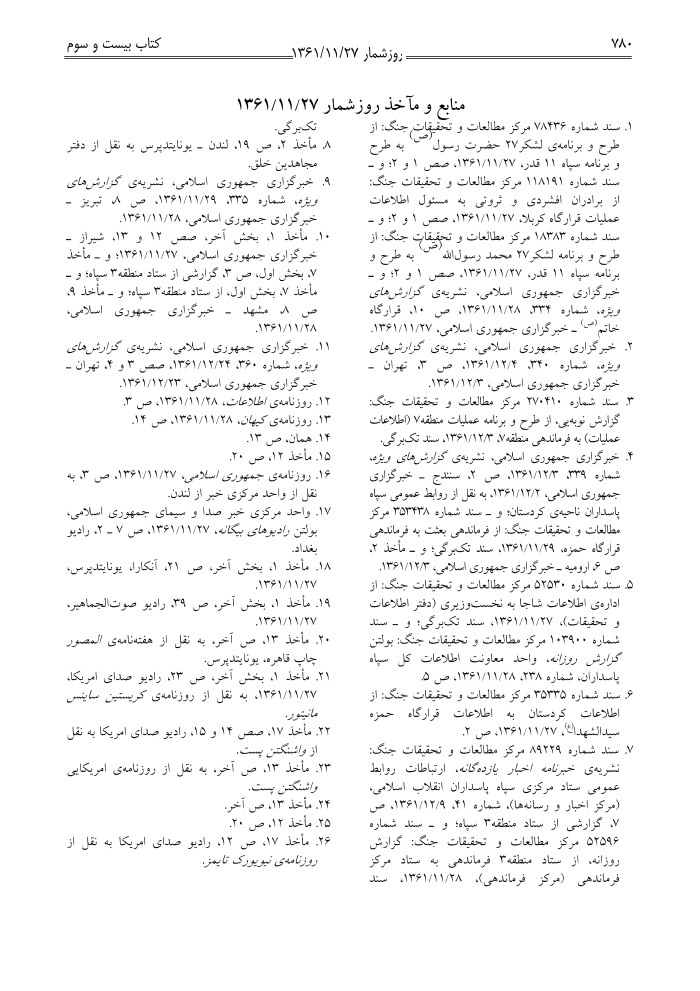 ۷۸۰
روزشمار ۱۳۶۱/۱۱/۲۷
کتاب بیست و سوم
منابع و مآخذ روزشمار ۱۳۶۱/۱۱/۲۷
۱. سند شماره ۷۸۴۳۶ مرکز مطالعات و تحقیقات جنگ: از
طرح و برنامه‌ی لشکر۲۷ حضرت رسول(ص) به طرح
و برنامه سپاه ۱۱ قدر، ۱۳۶۱/۱۱/۲۷، صص ۱ و ۲؛ و ـ
سند شماره ۱۱۸۱۹۱ مرکز مطالعات و تحقیقات جنگ:
از برادران افشردی و ثروتی به مسئول اطلاعات
عملیات قرارگاه کربلا، ۱۳۶۱/۱۱/۲۷، صص ۱ و ۲؛ و ـ
سند شماره ۱۸۳۸۳ مرکز مطالعات و تحقیقات جنگ: از
طرح و برنامه لشکر۲۷ محمد رسول‌الله(ص) به طرح و
برنامه سپاه ۱۱ قدر، ۱۳۶۱/۱۱/۲۷، صص ۱ و ۲؛ و ـ
خبرگزاری جمهوری اسلامی، نشریه‌ی گزارش‌های
ویژه، شماره ۳۳۴، ۱۳۶۱/۱۱/۲۸، ص ۱۰، قرارگاه
خاتم(ص) ـ خبرگزاری جمهوری اسلامی، ۱۳۶۱/۱۱/۲۷.
۲. خبرگزاری جمهوری اسلامی، نشریه‌ی گزارش‌های
ویژه، شماره ۳۴۰، ۱۳۶۱/۱۲/۴، ص ۳، تهران ـ
خبرگزاری جمهوری اسلامی، ۱۳۶۱/۱۲/۳.
۳. سند شماره ۲۷۰۴۱۰ مرکز مطالعات و تحقیقات جنگ:
گزارش نوبه‌یی، از طرح و برنامه عملیات منطقه۷ (اطلاعات
عملیات) به فرماندهی منطقه۷، ۱۳۶۱/۱۲/۳، سند تک‌برگی.
۴. خبرگزاری جمهوری اسلامی، نشریه‌ی گزارش‌های ویژه،
شماره ۳۳۹، ۱۳۶۱/۱۲/۳، ص ۲، سنندج ـ خبرگزاری
جمهوری اسلامی، ۱۳۶۱/۱۲/۲، به نقل از روابط عمومی سپاه
پاسداران ناحیه‌ی کردستان؛ و ـ سند شماره ۳۵۳۴۳۸ مرکز
مطالعات و تحقیقات جنگ: از فرماندهی بعثت به فرماندهی
قرارگاه حمزه، ۱۳۶۱/۱۱/۲۹، سند تک‌برگی؛ و ـ مأخذ ۲،
ص ۶، ارومیه ـ خبرگزاری جمهوری اسلامی، ۱۳۶۱/۱۲/۳.
۵. سند شماره ۵۲۵۳۰ مرکز مطالعات و تحقیقات جنگ: از
اداره‌ی اطلاعات شاجا به نخست‌وزیری (دفتر اطلاعات
و تحقیقات)، ۱۳۶۱/۱۱/۲۷، سند تک‌برگی؛ و ـ سند
شماره ۱۰۳۹۰۰ مرکز مطالعات و تحقیقات جنگ: بولتن
گزارش روزانه، واحد معاونت اطلاعات کل سپاه
پاسداران، شماره ۲۳۸، ۱۳۶۱/۱۱/۲۸، ص ۵.
۶. سند شماره ۳۵۳۳۵ مرکز مطالعات و تحقیقات جنگ: از
اطلاعات کردستان به اطلاعات قرارگاه حمزه
سیدالشهدا(ع)، ۱۳۶۱/۱۱/۲۷، ص ۲.
۷. سند شماره ۸۹۲۲۹ مرکز مطالعات و تحقیقات جنگ:
نشریه‌ی خبرنامه اخبار بازده‌گانه، ارتباطات روابط
عمومی ستاد مرکزی سپاه پاسداران انقلاب اسلامی،
(مرکز اخبار و رسانه‌ها)، شماره ۴۱، ۱۳۶۱/۱۲/۹، ص
۷، گزارشی از ستاد منطقه۳ سپاه؛ و ـ سند شماره
۵۲۵۹۶ مرکز مطالعات و تحقیقات جنگ: گزارش
روزانه، از ستاد منطقه۳ فرماندهی به ستاد مرکز
فرماندهی (مرکز فرماندهی)، ۱۳۶۱/۱۱/۲۸، سند
تک‌برگی.
۸. مأخذ ۲، ص ۱۹، لندن ـ یونایتدپرس به نقل از دفتر
مجاهدین خلق.
۹. خبرگزاری جمهوری اسلامی، نشریه‌ی گزارش‌های
ویژه، شماره ۳۳۵، ۱۳۶۱/۱۱/۲۹، ص ۸، تبریز ـ
خبرگزاری جمهوری اسلامی، ۱۳۶۱/۱۱/۲۸.
۱۰. مأخذ ۱، بخش آخر، صص ۱۲ و ۱۳، شیراز ـ
خبرگزاری جمهوری اسلامی، ۱۳۶۱/۱۱/۲۷؛ و ـ مأخذ
۷، بخش اول، ص ۳، گزارشی از ستاد منطقه۳ سپاه؛ و ـ
مأخذ ۷، بخش اول، از ستاد منطقه۳ سپاه؛ و ـ مأخذ ۹،
ص ۸، مشهد ـ خبرگزاری جمهوری اسلامی،
۱۳۶۱/۱۱/۲۸.
۱۱. خبرگزاری جمهوری اسلامی، نشریه‌ی گزارش‌های
ویژه، شماره ۳۶۰، ۱۳۶۱/۱۲/۲۴، صص ۳ و ۴، تهران ـ
خبرگزاری جمهوری اسلامی، ۱۳۶۱/۱۲/۲۳.
۱۲. روزنامه‌ی اطلاعات، ۱۳۶۱/۱۱/۲۸، ص ۳.
۱۳. روزنامه‌ی کیهان، ۱۳۶۱/۱۱/۲۸، ص ۱۴.
۱۴. همان، ص ۱۳.
۱۵. مأخذ ۱۲، ص ۲۰.
۱۶. روزنامه‌ی جمهوری اسلامی، ۱۳۶۱/۱۱/۲۷، ص ۳، به
نقل از واحد مرکزی خبر از لندن.
۱۷. واحد مرکزی خبر صدا و سیمای جمهوری اسلامی،
بولتن رادیوهای بیگانه، ۱۳۶۱/۱۱/۲۷، ص ۷ ـ ۲، رادیو
بغداد.
۱۸. مأخذ ۱، بخش آخر، ص ۲۱، آنکارا، یونایتدپرس،
۱۳۶۱/۱۱/۲۷.
۱۹. مأخذ ۱، بخش آخر، ص ۳۹، رادیو صوت‌الجماهیر،
۱۳۶۱/۱۱/۲۷.
۲۰. مأخذ ۱۳، ص آخر، به نقل از هفته‌نامه‌ی المصور
چاپ قاهره، یونایتدپرس.
۲۱. مأخذ ۱، بخش آخر، ص ۲۳، رادیو صدای امریکا،
۱۳۶۱/۱۱/۲۷، به نقل از روزنامه‌ی کریستین ساینس
مانیتور.
۲۲. مأخذ ۱۷، صص ۱۴ و ۱۵، رادیو صدای امریکا به نقل
از واشنگتن پست.
۲۳. مأخذ ۱۳، ص آخر، به نقل از روزنامه‌ی امریکایی
واشنگتن پست.
۲۴. مأخذ ۱۳، ص آخر.
۲۵. مأخذ ۱۲، ص ۲۰.
۲۶. مأخذ ۱۷، ص ۱۲، رادیو صدای امریکا به نقل از
روزنامه‌ی نیویورک تایمز.